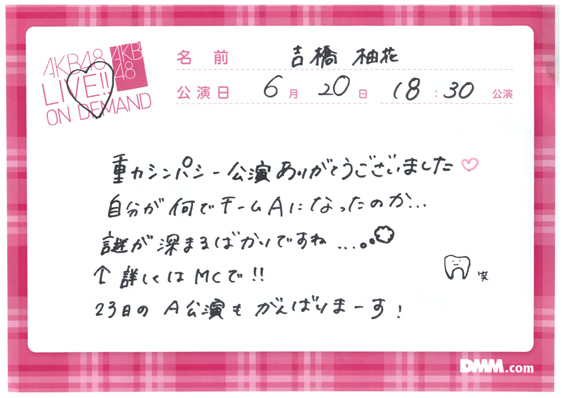 AKB48
LIVE!!
ON DEMAND
AKB
48
名前 吉橋 柚花
公演日 6月20日 18:30 公演
重力シンパシー公演ありがとうございました♡
自分が何でチームAになったのか…
謎が深まるばかりですね...。。
↑詳しくはMCで!!
笑
23日の A公演も がんばりまーす!
DMM.com